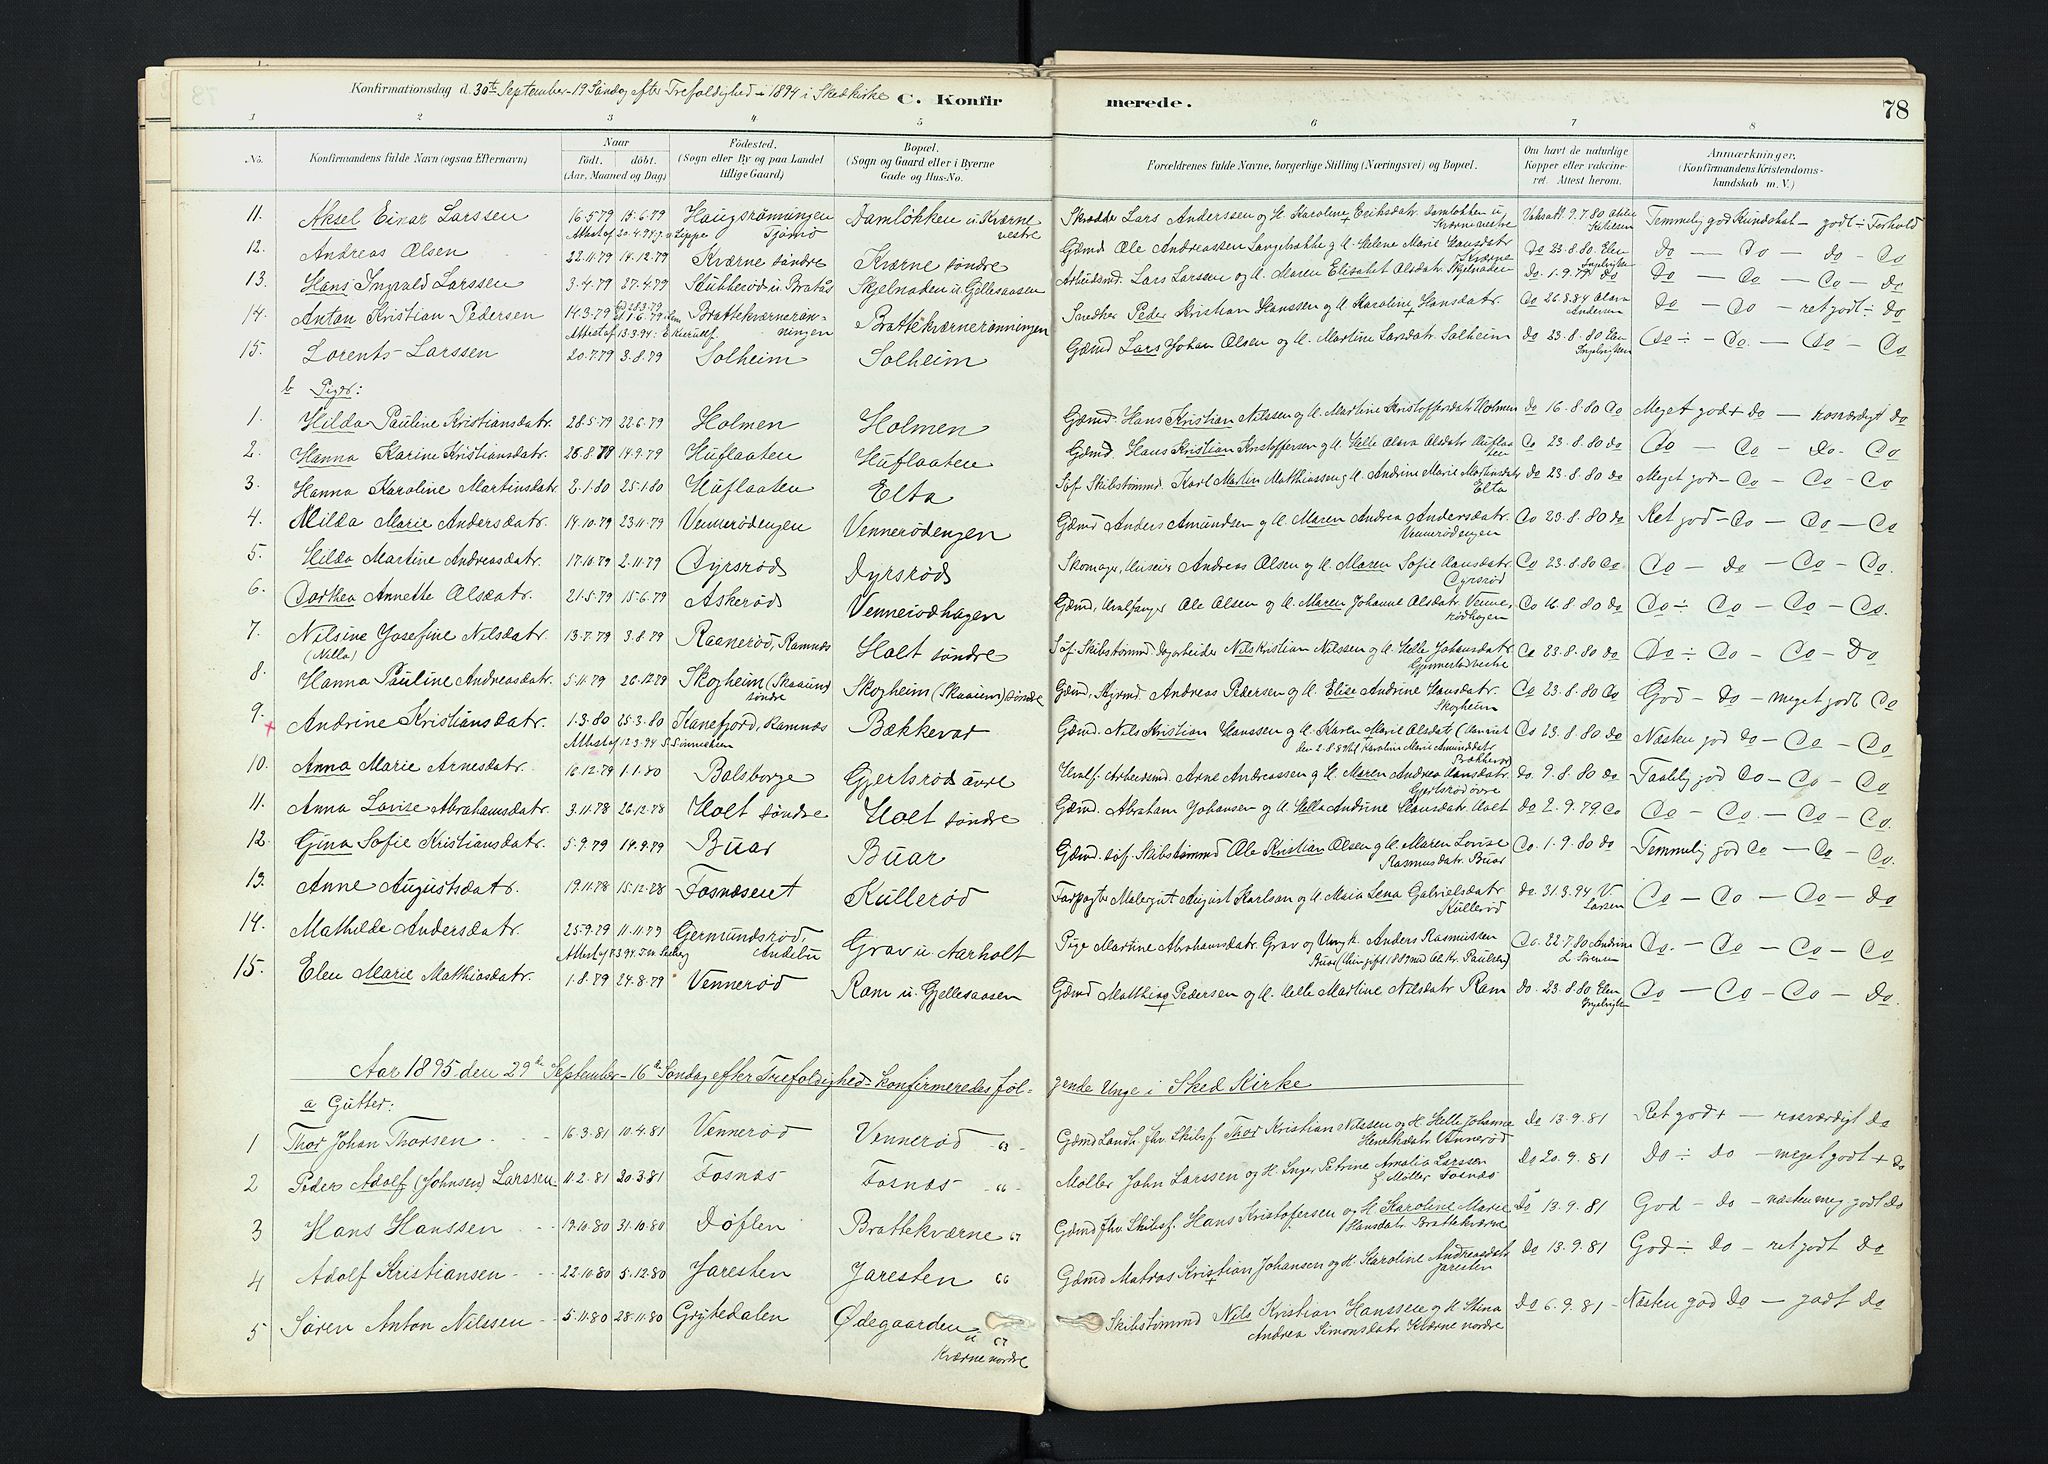 Konfirmationsdag d. 30te September - 19 Søndag efter Trefoldighed - 1894 i Skedkirke C. Konfirmerede. 78
1 2 3 4 5 6 7 8
No. Konfirmandens fulde Navn (ogsaa Efternavn) Naar født. døbt. (Aar, Maaned og Dag) Fødested. (Sogn eller By og paa Landet tillige Gaard) Bopæl. (Sogn og Gaard eller i Byerne Gade og Hus-No. Forældrenes fulde Navne, borgerlige Stilling (Næringsvei) og Bopæl. Om havt de naturlige Kopper eller vakcineret. Attest herom. Anmærkninger. (Konfirmandens Kristendomskundskab m. V.)
11. Aksel Einar Larssen 16.5.79 15.6.79 Haugsrønningen Tjømø Damløkken u. Kværne vestre Skrædder Lars Anderssen og H. Karoline Eriksdatr. Damløkken u Kværne vestre 9.7.80 Temmelig god Kundskab - godt ÷ Forhold
Attest af 20.4.94
12. Andreas Olsen 22.11.79 14.12.79 Kværne søndre Kværne søndre Gdmd. Ole Andreassen Langebakke og H. Helene Marie Hansdatr. Kværne Do 23.8.80 Elen Ingelvigtsen Do - Do - Do - Do
13. Hans Ingvald Larssen 3.4.79 27.4.79 Stubberød u. Bratås Skjelnaden u. Gjellesaasen Arbeidsmd. Lars Larssen og H. Maren Elisabet Olsdatr. Skjelnaden Do. 1.9.79 Do Do - Co - Co - Do
14. Anton Kristian Pedersen 14.3.79 1.6.79 Brattekværnerønningen Brattekværnerønningen Snedker Peder Kristian Hanssen og H. Karoline Hansdatr. Co 26.8.84 Olava Andersen Do - Co - ret godt ÷ Do
Attest af 13.3.94
15. Lorents Larssen 20.7.79 3.8.79 Solheim Solheim Gdmd Lars Johan Olsen og H. Martine Larsdatr. Solheim Do 23.8.80 Elen Ingelvigtsen Do ÷ - Do. - Do - Co
b Piger:
1. Hilda Pauline Kristiansdatr. 28.5.79 22.6.79 Holmen Holmen Gdmd. Hans Kristian Nilssen og H. Martine Kristoffersdatr. Holmen Do 16.8.80 Co Meget god + Do - rosværdigt Do
2. Hanna Karine Kristiansdatr. 26.8.79 14.9.79 Huflaaten Huflaaten Gdmd. Hans Kristian Kristoffersen og H. Helle Olava Olsdatr. Huflaaten Co 23.8.80 Do Co - Co - Do - Co
3. Hanna Karoline Martinsdatr. 2.1.80 25.1.80 Huflaaten Elta Søf. Skibstømmd. Karl Martin Matthiassen og H. Andrine Marie Mortensdatr. Elta Do 23.8.80 Do Meget god - Co - Co - Co
4. Hilda Marie Andersdatr. 14.10.79 23.11.79 Vennerødengen Vennerødengen Gdmd Anders Amundsen og H. Maren Andrea Andersdatr. Vennerødengen Co 23.8.80 Do Ret god - Co - Co - Co
5. Hilda Martine Andreasdatr. 17.10.79 2.11.79 Dyrsrød Dyrsrød Skomager, Huseier Andreas Olsen og H. Maren Sofie Hansdatr. Dyrsrød Co 23.8.80 Co. Co - Do - Co - Co.
6. Dorthea Annette Olsdatr. 21.5.79 15.6.79 Askerød Vennerødhagen Gdmd. Hvalfanger Ole Olsen og H. Maren Johanne Olsdatr. Vennerødhagen Co 16.8.80 Do Co ÷ Co - Co - Co.
7. Nilsine Josefine Nilsdatr. 13.7.79 3.8.79 Raanerød, Ramnæs Holt søndre Søf. Skibstømmd. Dagarbeider Nils Kristian Nilssen og H. Helle Johansdatr. Co 23.8.80 Do Do ÷ Co - Co - Do
(Nilla)
8. Hanna Pauline Andreasdatr. 5.11.79 26.12.79 Skogheim (Skaaum) søndre Skogheim (Skaaum) søndre Gdmd. Styrmd. Andreas Pedersen og H. Elise Andrine Hansdatr. Skogheim Co 23.8.80 Co God - Do - meget godt Co
9. Andrine Kristiansdatr. 1.3.80 25.3.80 Kanefjord, Ramnæs Bækkevar Gdmd. Nils Kristian Hanssen og H. Karen Marie Olsdatr. den 2.8.89 Karoline Marie Amundsdatr. Bækkevar Co 23.8.80 Do Næsten god Do - Co - Co
Attest af 12.3.94
10. Anna Marie Arnesdatr. 16.12.79 1.1.80 Balsborge Gjertsrød øvre Hvalf. Arbeidsmd. Arne Andreassen og H. Maren Andrea Hansdatr. Gjertsrød øvre Do. 9.8.80 Do Taalelig god Co - Co - Co
11. Anna Lovise Abrahamsdatr. 3.11.78 26.12.78 Holt søndre Holt søndre Gdmd. Abraham Johansen og H. Helle Andrine Hansdatr. Holt Do 2.9.79 Co Co - Co - Co - Co.
12. Gina Sofie Kristiansdatr. 5.9.79 14.9.79 Buar Buar Gdmd. søf. Skibstømmd Ole Kristian Olsen og H. Maren Lovise Rasmusdatr. Buar Co. 1.9.80 Do Temmelig god Co - Co - Co.
13. Anne Augustsdatr. 19.11.78 15.12.78 Fosnæseiet Kullerød Forpagter Malergut August Karlsen og H. Maria Lena Gabrielsdatr. Kullerød Do. 31.3.94 V. Larsen Co - Co - Co - Do
14. Mathilde Andersdatr. 25.9.79 11.11.79 Germundsrød, Andebu Grav u. Aarholt Pige Martine Abrahamsdatr. Grav og Ungk. Anders Rasmussen Buar (Hun gift 1889 med Ol. Kr. Paulsen) Co. 22.7.80 Andrine L Sørensen Co. - Co - Co - Co
15. Elen Marie Mathiasdatr. 1.8.79 24.8.79 Vennerød Ram u. Gjellesaasen Gdmd Matthias Pedersen og H. Helle Martine Nilsdatr Ram Do. 23.8.80 Elen Ingelvigtsen Co - Co - Co - Do.
Aar 1895 den 29de September - 16de Søndag efter Trefoldighed - konfirmeredes følgende Unge i Sked Kirke
a Gutter:
1 Thor Johan Thorsen 16.3.81 10.4.81 Vennerød Vennerød 63 Gdmd Landh. fhv. Skibsf. Thor Kristian Nilssen og H. Helle Johanne Henriksdatr. Vennerød Do 13.9.81 Ret god + - rosværdigt Do
2 Peder Adolf (Johnsen) Larssen 11.2.81 20.3.81 Fosnæs Fosnæs 66 Møller John Larssen og H. Inger Petrine Amalia Larssen f. Møller Fosnæs Do 20.9.81 Do ÷ Do - meget godt + Do
3 Hans Hanssen 19.10.80 31.10.80 Døflen Brattekværne 67 Gdmd fhv. Skibsf. Hans Kristofersen og H. Karoline Marie Hansdatr. Brattekværne Do 13.9.81 God - Do - næsten meg. godt Do
4 Adolf Kristiansen 22.10.80 5.12.80 Jaresten Jaresten 66 Gdmd Matros Kristian Johansen og H. Karoline Andreasdatr Jaresten Do 13.9.81 God ÷ Do - ret godt Do
5 Søren Anton Nilssen 5.11.80 28.11.80 Grytedalen Ødegaarden u Kværne nordre 67 Skibstømmd Nils Kristian Hanssen og H. Stina Andrea Simonsdatr Kværne nordre Do 6.9.81 - Næsten god Do - godt Do